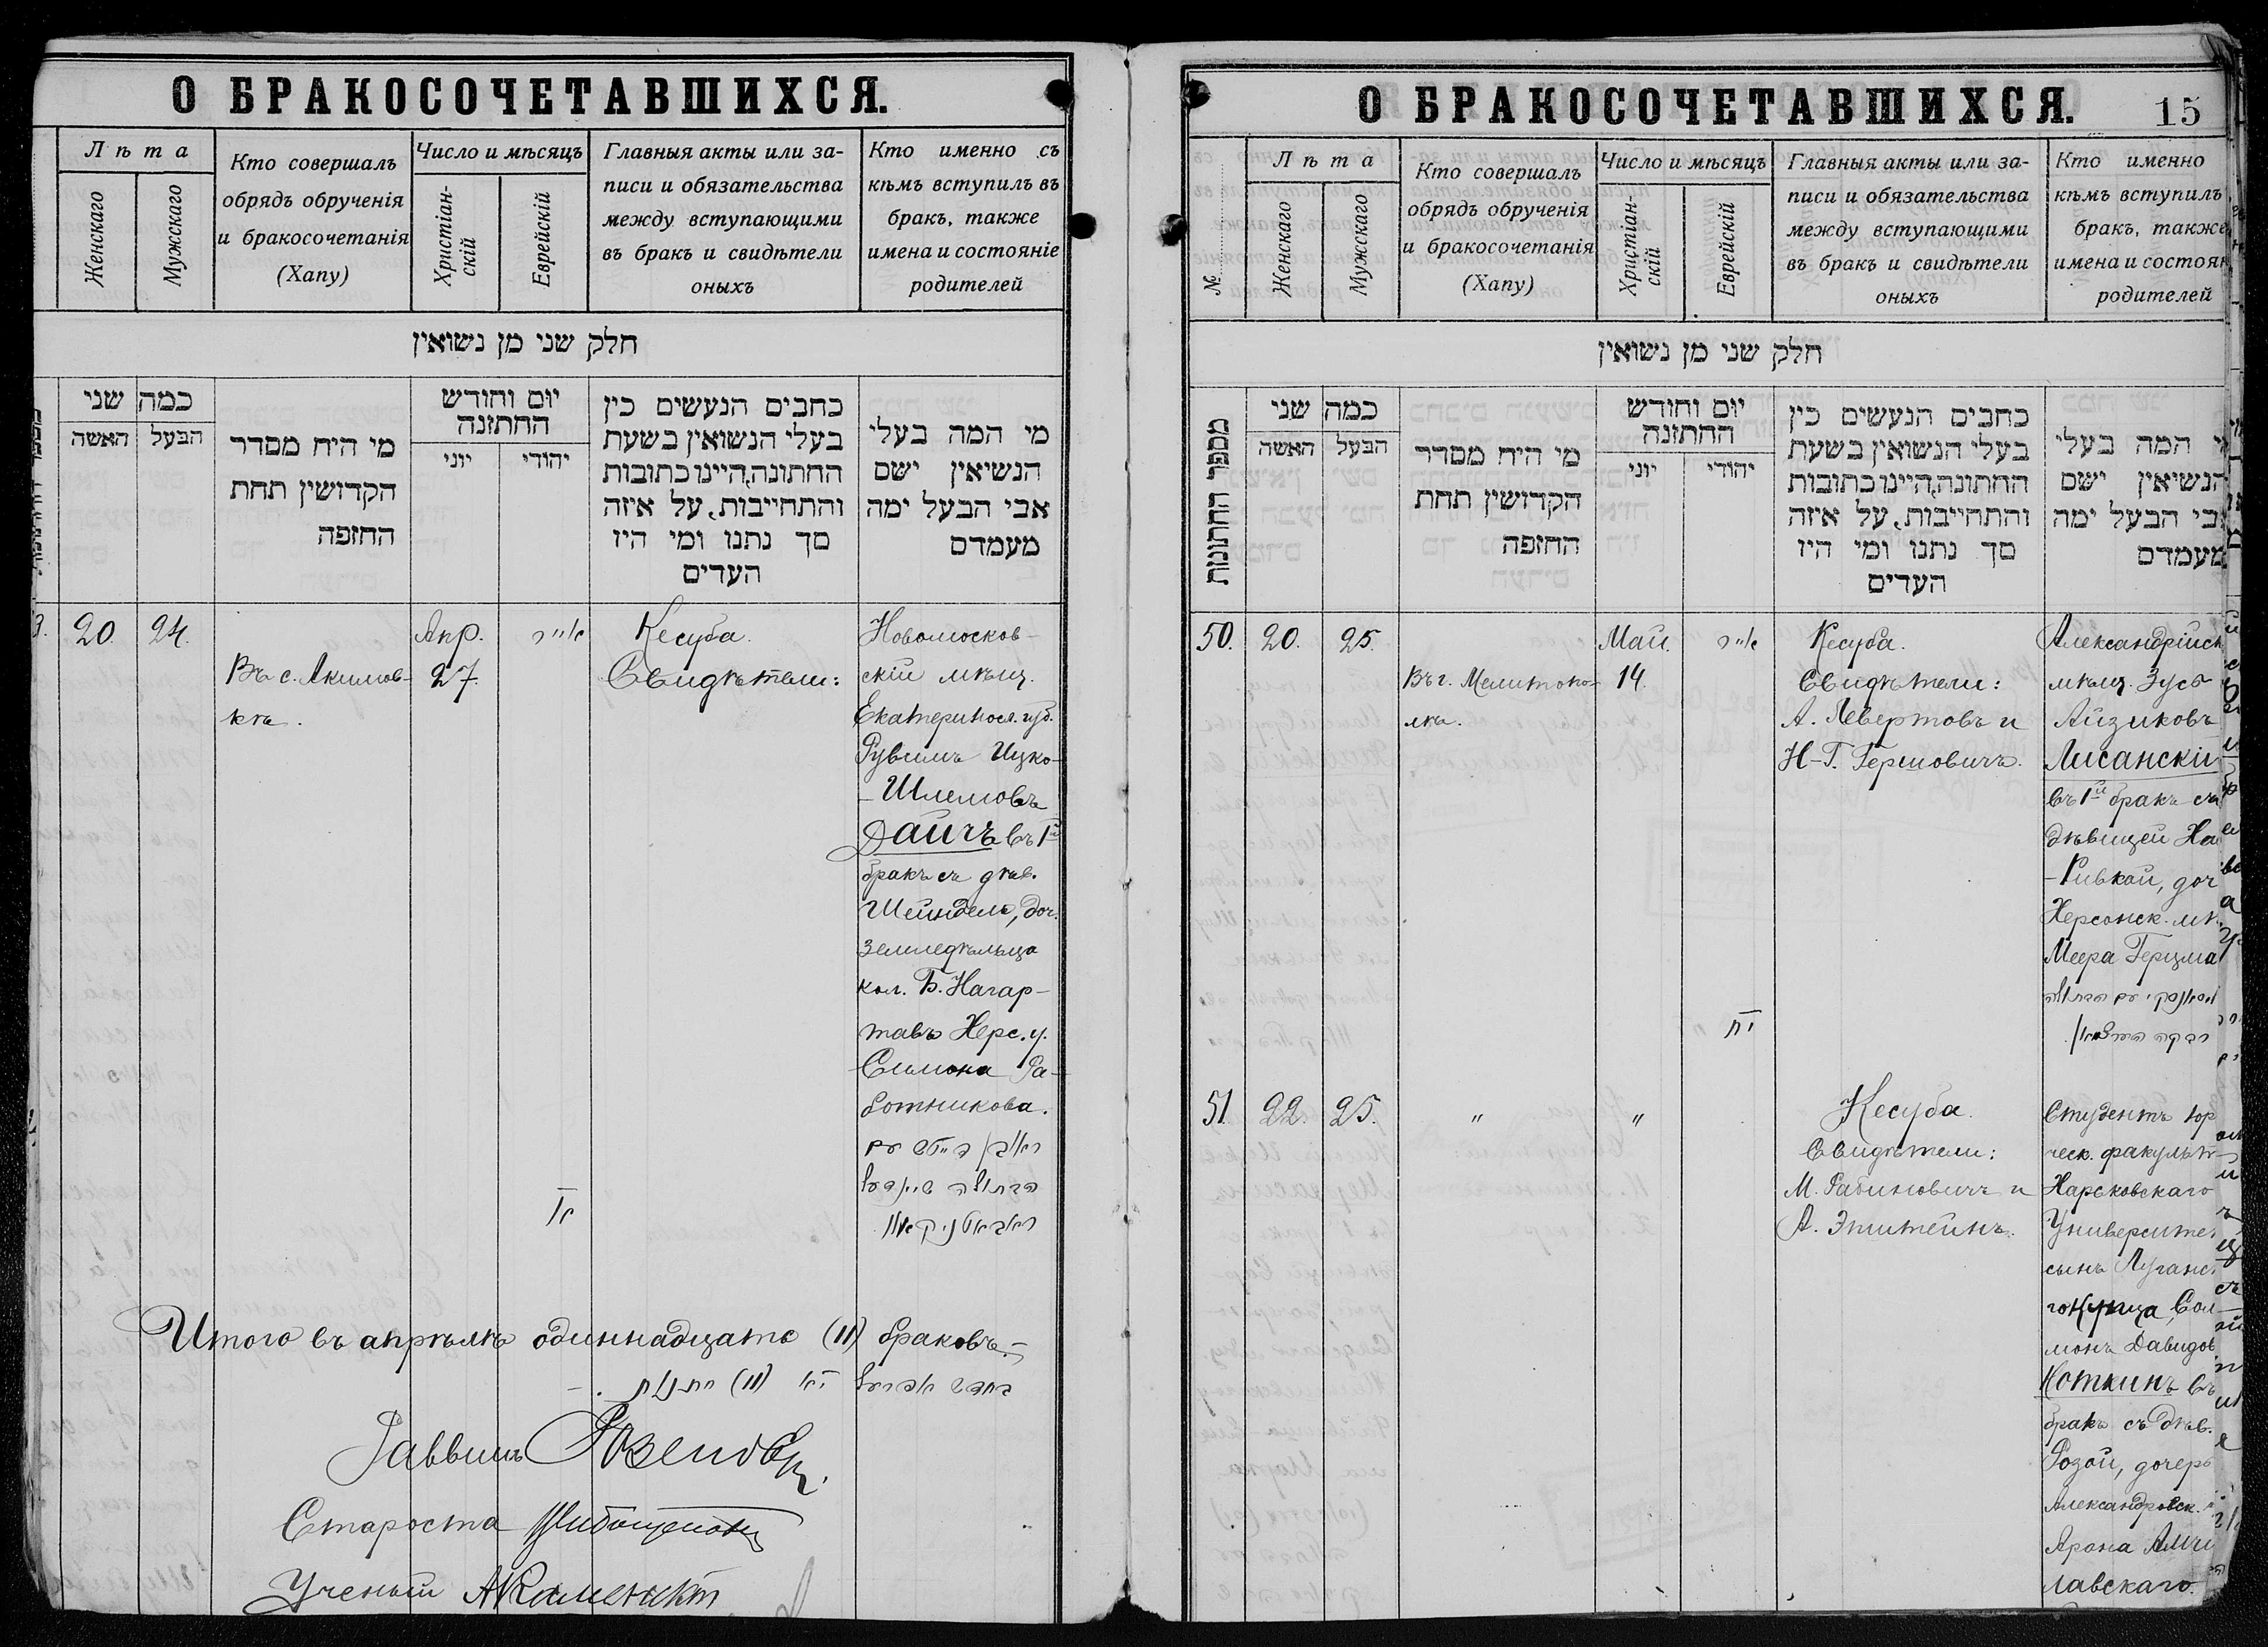 О БРАКОСОЧЕТАВШИХСЯ.
Лѣта
Женскаго
Мужскаго
Кто совершалъ
обрядъ обрученія
и бракосочетанія
(Хапу)
Число и мѣсяцъ
Христіан-
скій
Еврейскій
Главныя акты или за-
писи и обязательства
между вступающими
въ бракъ и свидѣтели
оныхъ
Кто именно съ
кѣмъ вступилъ въ
бракъ, также
имена и состояніе
родителей
חלק שני מן נשואין
כמה שני
האשה
הבעל
מי היח מסדר
הקדושין תחת
החופה
יום וחודש
החתונה
יוני
יהודי
כחבים הנעשים כין
בעלי הנשואין בשעת
החתונה,היינו כתובות
והתחייבות, על איזה
סך נתנו ומי היו
העדים
מי המה בעלי
הנשיאין ישם
אבי הבעל ימה
מעמדם
20. 24.
Въ с. Акимов-
кѣ.
Апр.
27.
אייר
יא
Кесуба.
Свидѣтели:
Новомосков-
скій мѣщ.
Екатеринос. губ.
Рувимъ Ицко-
-Шлемовъ
Дайчъ въ 1й
бракъ съ дѣв.
Шейндель, доч.
земледѣльца
кол. Б. Нагар-
тавъ Херс. у.
Симона Ра-
ботникова.
ראובן דייטש עם
הבתולה שיינדל
ראבאטניקאוו
Итого въ апрѣлѣ одиннадцать (11) браковъ.
בחדש אפריל יא (11) חתנות.
Раввинъ
Староста
Ученый АКаменскій
О БРАКОСОЧЕТАВШИХСЯ.
15
№
Лѣта
Женскаго
Мужскаго
Кто совершалъ
обрядъ обрученія
и бракосочетанія
(Хапу)
Число и мѣсяцъ
Христіан-
скій
Еврейскій
Главныя акты или за-
писи и обязательства
между вступающими
въ бракъ и свидѣтели
оныхъ
Кто именно
кѣмъ вступилъ
бракъ, также
имена и состоян
родителей
חלק שני מן נשואין
מספר החתונות
כמה שני
האשה
הבעל
מי היח מסדר
הקדושין תחת
החופה
יום וחודש
החתונה
יוני
יהודי
כחבים הנעשים כין
בעלי הנשואין בשעת
החתונה,היינו כתובות
והתחייבות, על איזה
סך נתנו ומי היו
העדים
י המה בעלי
הנשיאין ישם
בי הבעל ימה
מעמדם
50. 20. 25.
Въ г. Мелитопо-
лѣ.
Май.
14.
אייר
יח
Кесуба.
Свидѣтели:
А. Левертовъ и
Н-Г. Гершовичъ.
Александрійск
мѣщ. Зусъ
Айзиковъ
Лисанскій
въ 1й бракъ съ
дѣвицей Ха
-Ривкой, доч
Херсонск. мѣ
Меера Герцма
ליסאנסקי עם הבתולה
רבקה הערצמאן.
51. 22. 25.
"
"
Кесуба.
Свидѣтели:
М. Рабиновичъ и
А. Эпштейнъ.
Студентъ юр
ческ. факульт
Харьковскаго
Университе
сынъ Луганс
го купца, Сол
монъ Давидов
Ноткинъ въ
бракъ съ дѣв.
Розой, дочерь
Александровск.
Арона Амчи
лавскаго.